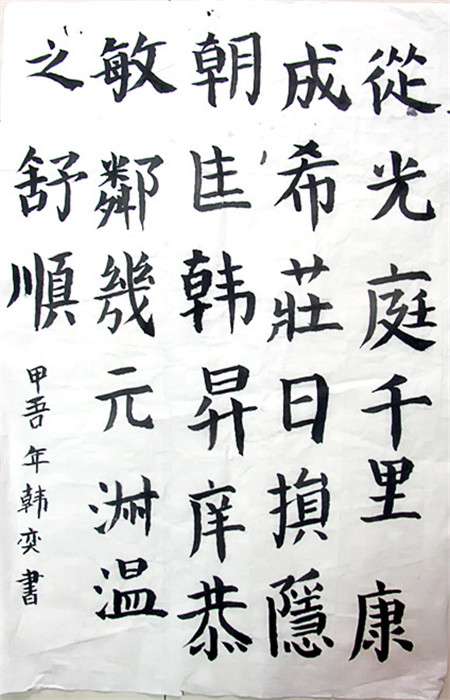 從光庭千里康
成希莊日損隱
朝匡韩昇庠恭
敏鄰幾元温
之舒順
甲吾年韩奕書